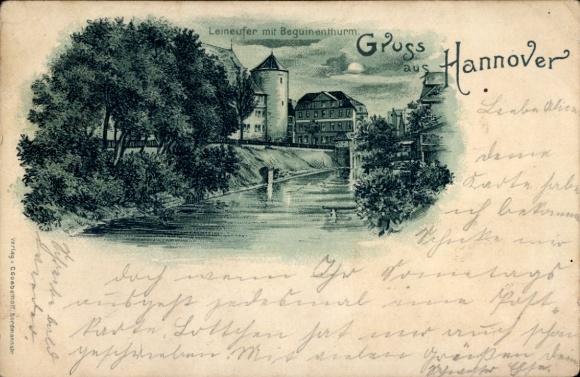 Leineufer mit Beguinenthurm.
Gruss
aus Hannover
Liebe Alice
deine
Karte habe
ich bekommen
Schicke mir
doch wenn Ihr Sonntags
ausgeht jedesmal eine Post
karte. Lottchen hat mir auch schon
geschrieben. Mit vielen Grüßen deine
Schwester Else.
Schreibe bald
Verlag v.